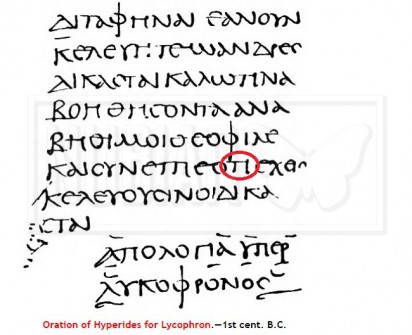 ΔΙΤΑΦΗΝΑΙ ΕΑΝΟΥΝ
ΚΕΛΕΥΗΤΕΩΑΝΔΡΕϹ
ΔΙΚΑϹΤΑΙΚΑΛΩΤΙΝΑ
ΒΟΗΘΗϹΟΝΤΑΑΝΑ
ΒΗΘΙΜΟΙΘΕΟΦΙΛΕ
ΚΑΙϹΥΝΕΙΠΕΟΤΙΕΧΕΙϹ
ΚΕΛΕΥΟΥϹΙΝΟΙΔΙΚΑ
ϹΤΑΙ
ΑΠΟΛΟΓΙΑ ΥΠΕΡ
ΛΥΚΟΦΡΟΝΟϹ
Oration of Hyperides for Lycophron.—1st cent. B.C.